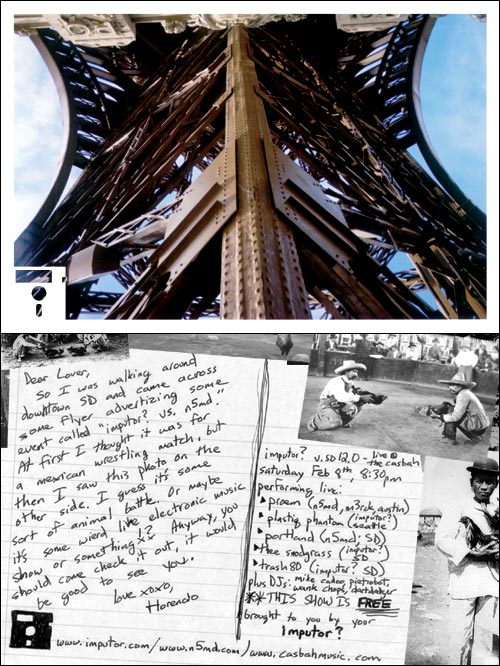 Dear Lover,
So I was walking around
downtown SD and came across
some flyer advertizing some
event called "imputor? vs. n5md."
At first I thought it was for
a mexican wrestling match, but
then I saw this photo on the
other side. I guess it's some
sort of animal battle. Or maybe
it's some wierd live electronic music
show or something. Anyway, you
should come check it out, it would
be good to see you.
love xoxo,
Horendo
imputor? v.SD12.0 - live @
the casbah
saturday Feb 8th, 8:30pm
performing live:
proem (n5md, m3rck, austin)
plastiq phantom (imputor? seattle)
portland (n5md, SD)
thee snodgrass (imputor? SD)
trash80 (imputor? SD)
plus DJs: mike cadoo, pietrobot,
wonk chops, dartdanger
**THIS SHOW IS FREE
brought to you by your
imputor?
www.imputor.com/www.n5md.com/www.casbahmusic.com